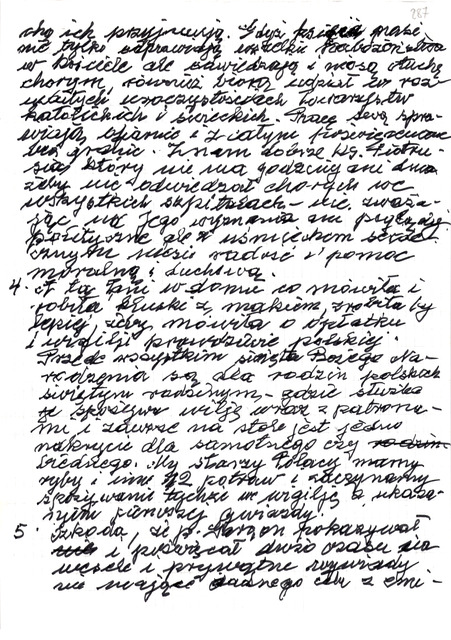 287
chą ich przyjmują. Gdyż księża nasi
nie tylko odprawiają wszelkie nabożeństwa
w kościele ale odwiedzają i niosą otuchę
chorym, również biorą udział w roz-
maitych uroczystościach towarzystw
katolickich i świeckich. Pracę swą spra-
wiają ofiarnie i z całym poświęceniem
bez granic. Znam dobrze ks. Piotru-
sia który nie ma godziny ani dnia
żeby nie odwiedzał chorych we
wszystkich szpitalach - nie zważa-
jąc na Jego wyznania ani poglądy
polityczne ale z uśmiechem serde-
cznym niesie radość i pomoc
moralną i duchową.
4. A ta pani w domie co mówiła i
robiła kluski z makiem, zrobiła by
lepiej, żeby mówiła o opłatku
i wigilji prawdziwie polskiej.
Przede wszystkim święta Bożego Na-
rodzenia są dla rodzin polskich
świętym rodzinnym - gdzie służba
spożywa wilję wraz z patrona-
mi i zawsze na stole jest jedno
nakrycie dla samotnego czy
biednego. My starzy Polacy mamy
ryby i inne 12 potraw i zaczynamy
spożywanie tychże w wigilję z ukaza-
niem pierwszej gwiazdy.
5. Szkoda, że p. pokazywał
i poświęcał dużo czasu na
wesele i prywatne wywiady
nie mające żadnego celu z emi-